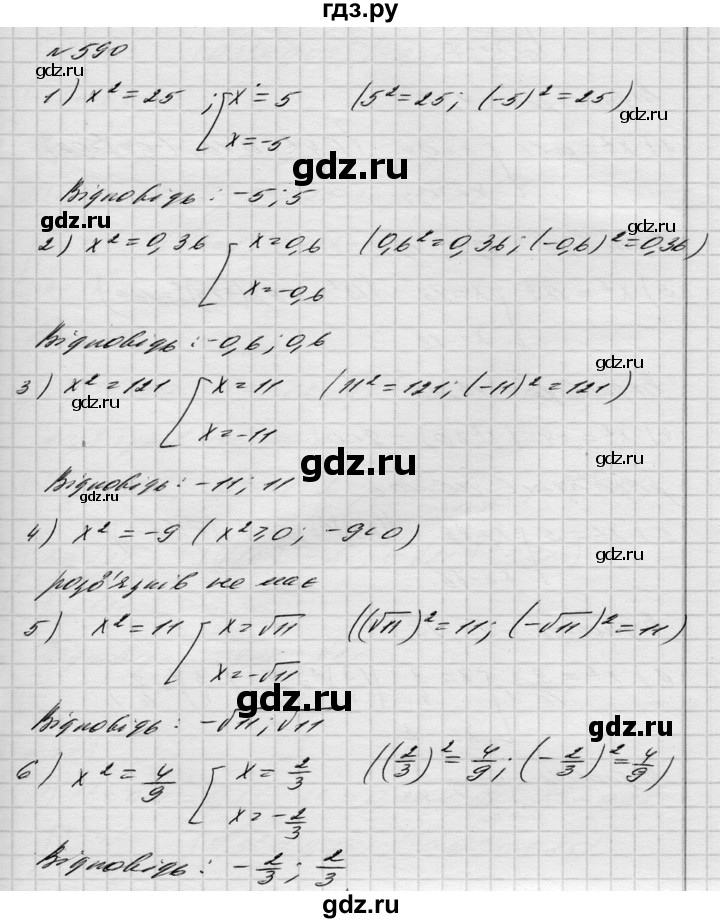 гдз.ру
№ 590
gdz.ru
gdz.ru
1) x² = 25 ; [ x = 5 (5² = 25; (-5)² = 25)
x = -5
gdz.ru
Відповідь: -5; 5
gdz.ru
gdz.ru
2) x² = 0,36 [ x = 0,6 (0,6² = 0,36; (-0,6)² = 0,36)
x = -0,6
Відповідь: -0,6; 0,6
gdz.ru
3) x² = 121 [ x = 11 (11² = 121; (-11)² = 121)
gdz.ru
x = -11
gdz.ru
gdz.ru
Відповідь: -11; 11
gdz.ru
4) x² = -9 (x² ≥ 0; -9 < 0)
gdz.ru
розв'язків не має
5) x² = 11 [ x = √11 ((√11)² = 11; (-√11)² = 11)
x = -√11
gdz.ru
Відповідь: -√11; √11
gdz.ru
6) x² = 4/9 [ x = 2/3 ((2/3)² = 4/9; (-2/3)² = 4/9)
x = -2/3
Відповідь: -2/3; 2/3
gdz.ru